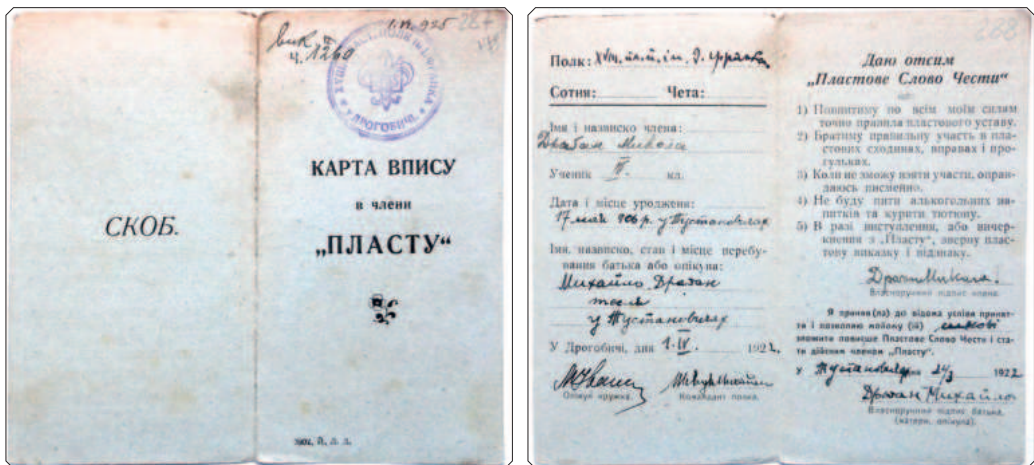 СКОБ.
вик. ч. 1260
КАРТА ВПИСУ
в члени
„ПЛАСТУ“
288
Полк: XVIII. ім. І. Франка
Сотня: Чета:
Імя і назвиско члена:
Дразан Микола
Ученик кл.
Дата і місце уродженя:
17 мая 906 р. у Тустановичах
Імя, назвиско, стан і місце перебу-
вання батька або опікуна:
Михайло Дразан
тесля
у Тустановичах
У Дрогобичі, дня 1. IV. 1922.
Опікун кружка.
Комендант полка.
Даю отсим
„Пластове Слово Чести“
1) Повнитиму по всім моїм силам
точно правила пластового уставу.
2) Братиму правильну участь в пла-
стових сходинах, вправах і про-
гульках.
3) Коли не зможу взяти участи, оправ-
даюсь письменно.
4) Не буду пити алькогольних на-
питків та курити тютюну.
5) В разі виступлення, або вичер-
кнення з „Пласту“, зверну плас-
тову виказку і відзнаку.
Власноручний підпис члена.
Я приняв(ла) до відома услівя принят-
тя і позволяю мойому (ій) синові
зложити повисше Пластове Слово Чести і ста-
ти дійсним членом „Пласту“.
У Тустановичах дня 24/3 1922
Дразан Михайло
Власноручний підпис батька.
(матери, опікуна).